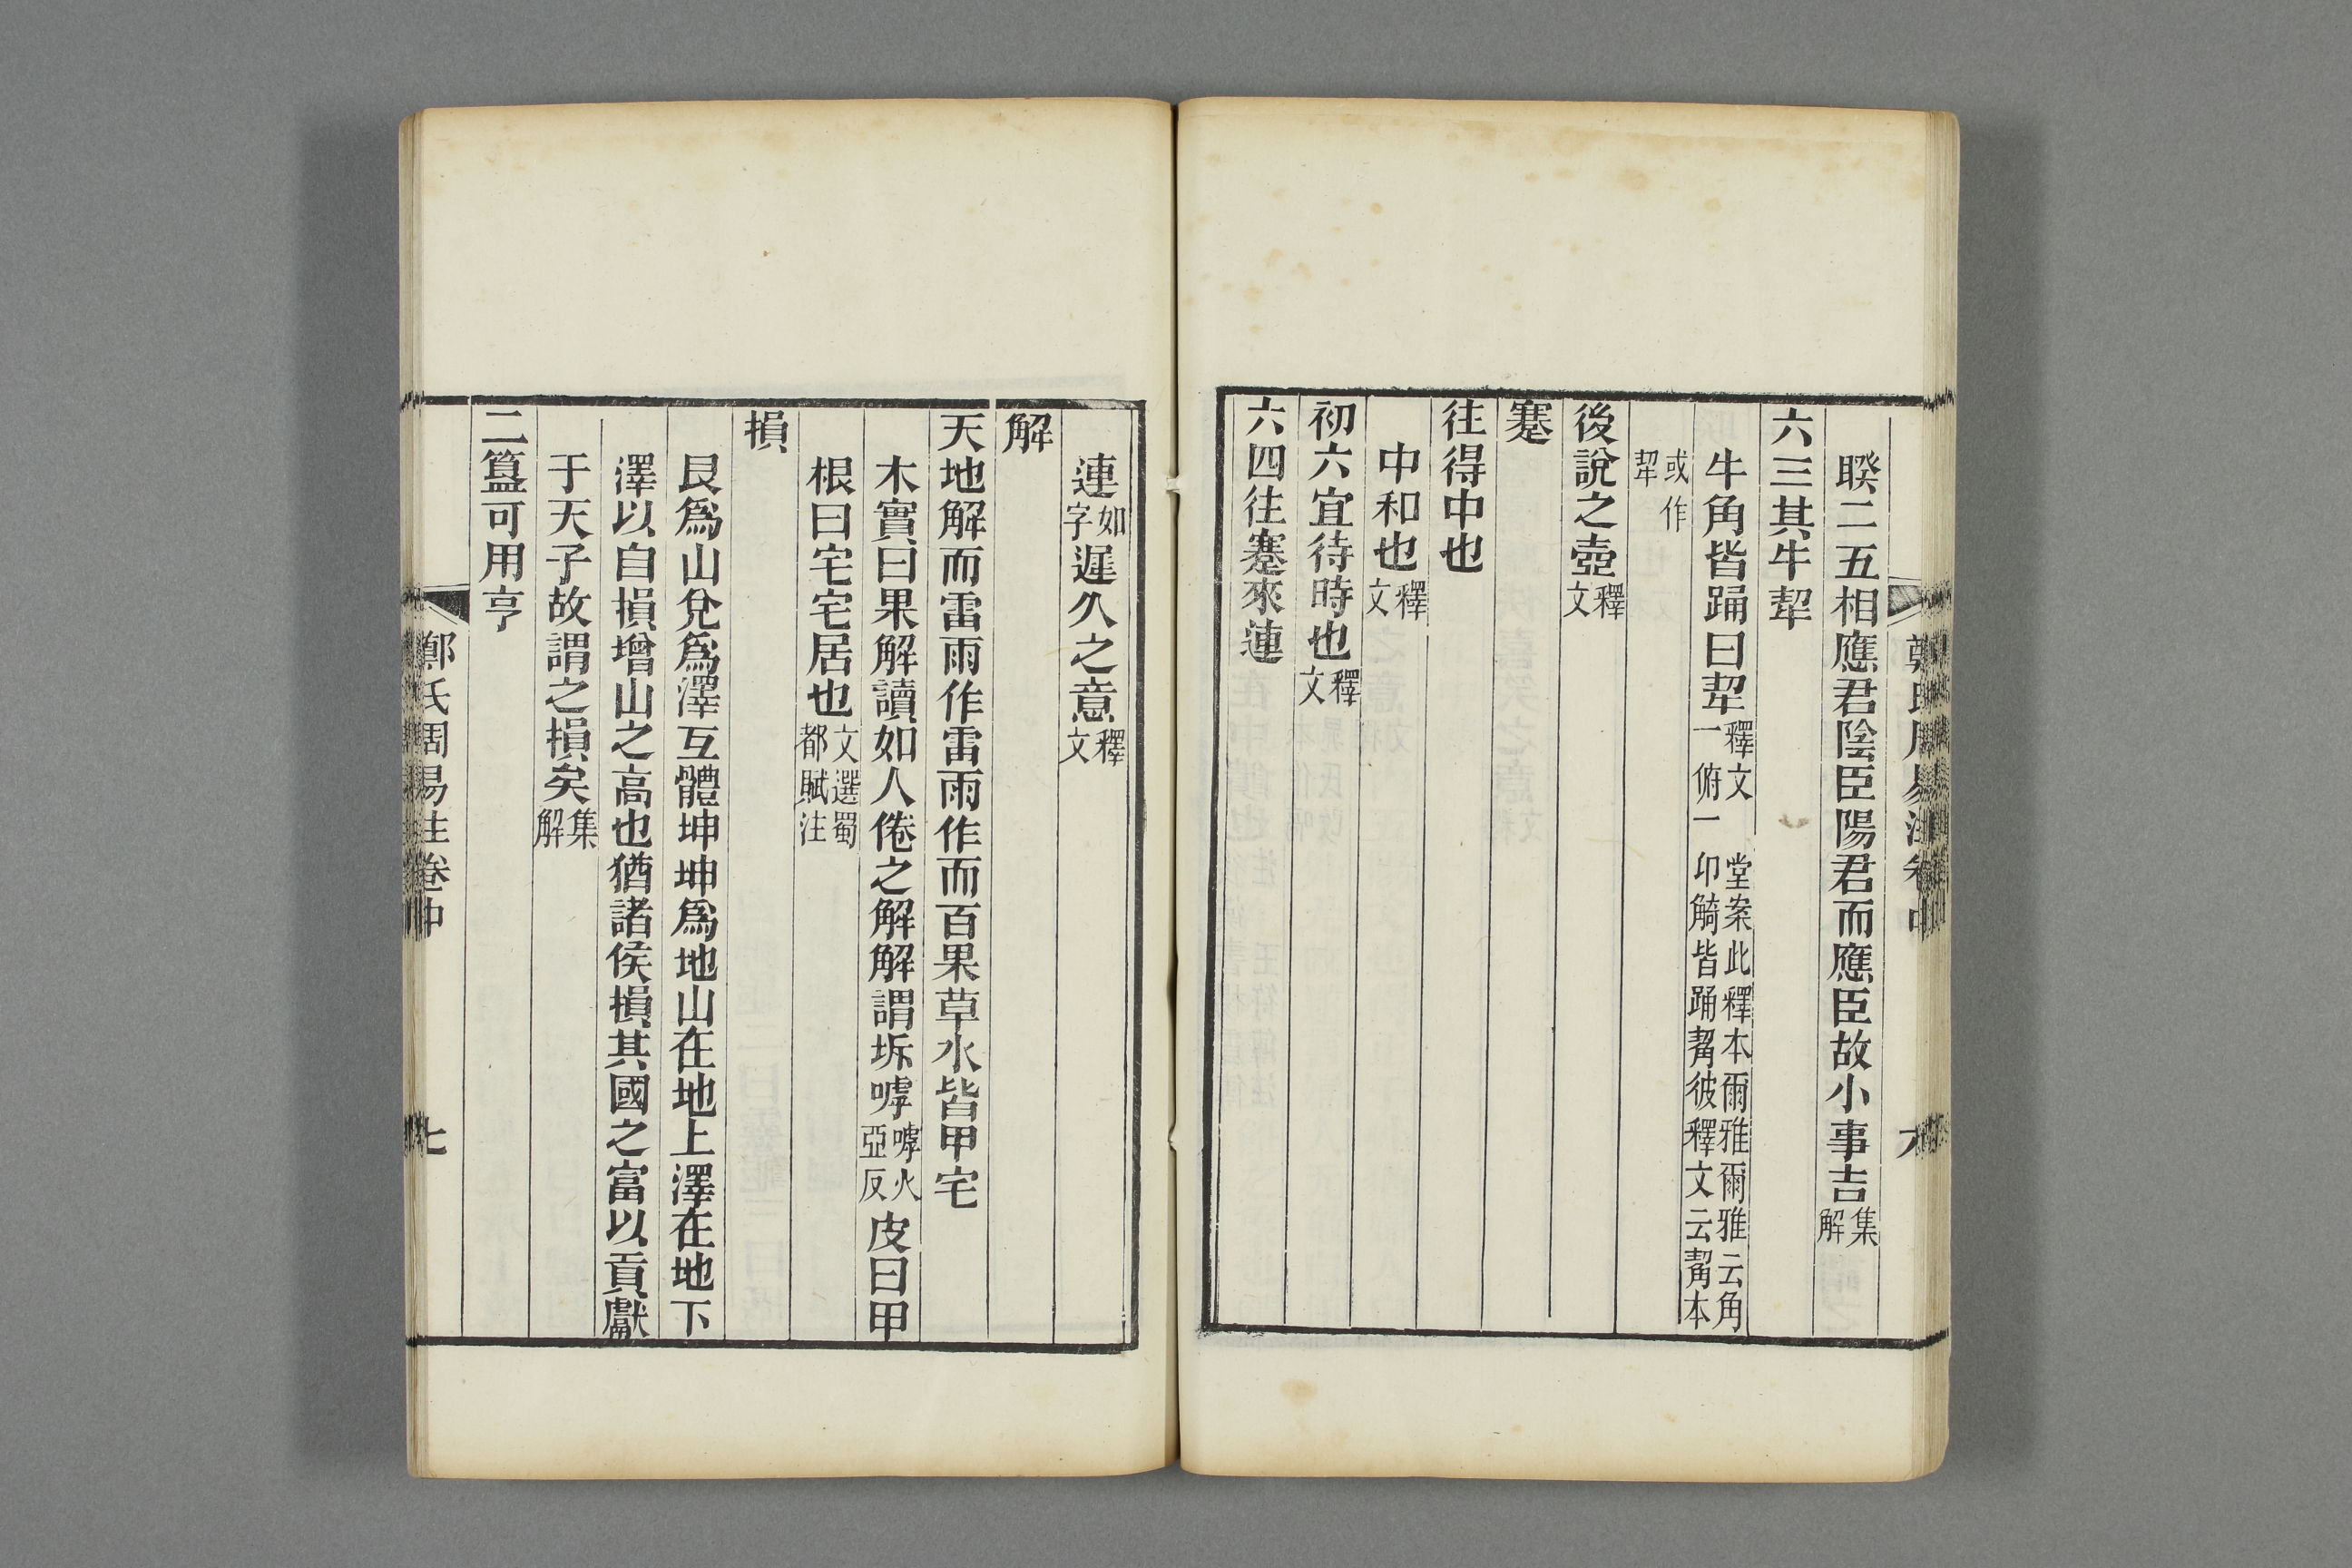 鄭氏周易注卷中 六
睽二五相應君陰臣陽君而應臣故小事吉集解
六三其牛㸷
牛角皆踊曰㸷釋文 堂案此釋本爾雅爾雅云角一俯一卬觭皆踊觢彼釋文云觢本
或作㸷
後說之壺釋文
蹇
往得中也
中和也釋文
初六宜待時也釋文
六四往蹇來連
連如字遲久之意釋文
解
天地解而雷雨作雷雨作而百果草木皆甲宅
木實曰果解讀如人倦之解解謂坼嘑嘑火亞反皮曰甲
根曰宅宅居也文選蜀都賦注
損
艮爲山兌爲澤互體坤坤爲地山在地上澤在地下
澤以自損增山之高也猶諸侯損其國之富以貢獻
于天子故謂之損矣集解
二簋可用亨
鄭氏周易注卷中 七